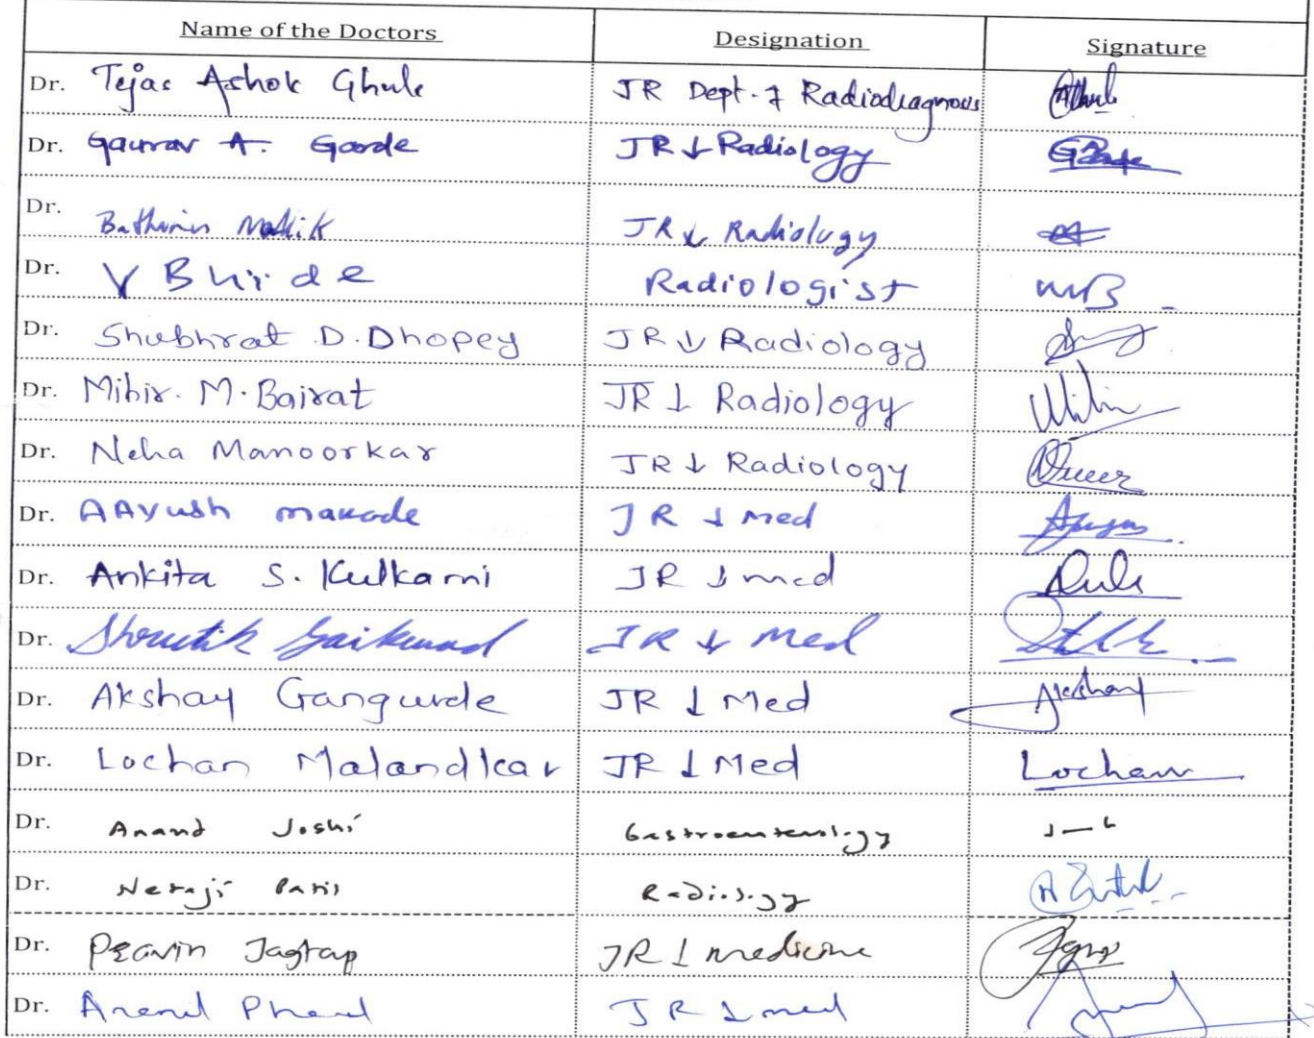 Name of the Doctors Designation Signature
Dr. Tejas Ashok Ghule JR Dept. of Radiodiagnosis
Dr. Gaurav A. Garde JR ↓ Radiology
Dr. Mallik JR ↓ Radiology
Dr. V Bhide Radiologist
Dr. Shubhrat D. Dhopey JR ↓ Radiology
Dr. Mihir. M. Bairat JR ↓ Radiology Mihir
Dr. Neha Manoorkar JR ↓ Radiology
Dr. AAyush makode JR ↓ med
Dr. Ankita S. Kulkarni JR ↓ med
Dr. Shrutik Gaikwad JR ↓ Med
Dr. Akshay Gangurde JR ↓ Med Akshay
Dr. Lochan Malandkar JR ↓ Med Lochan
Dr. Anand Joshi Gastroenterology
Dr. Netaji Patil Radiology
Dr. Pravin Jagtap JR ↓ medicine
Dr. Anand Phad JR ↓ med